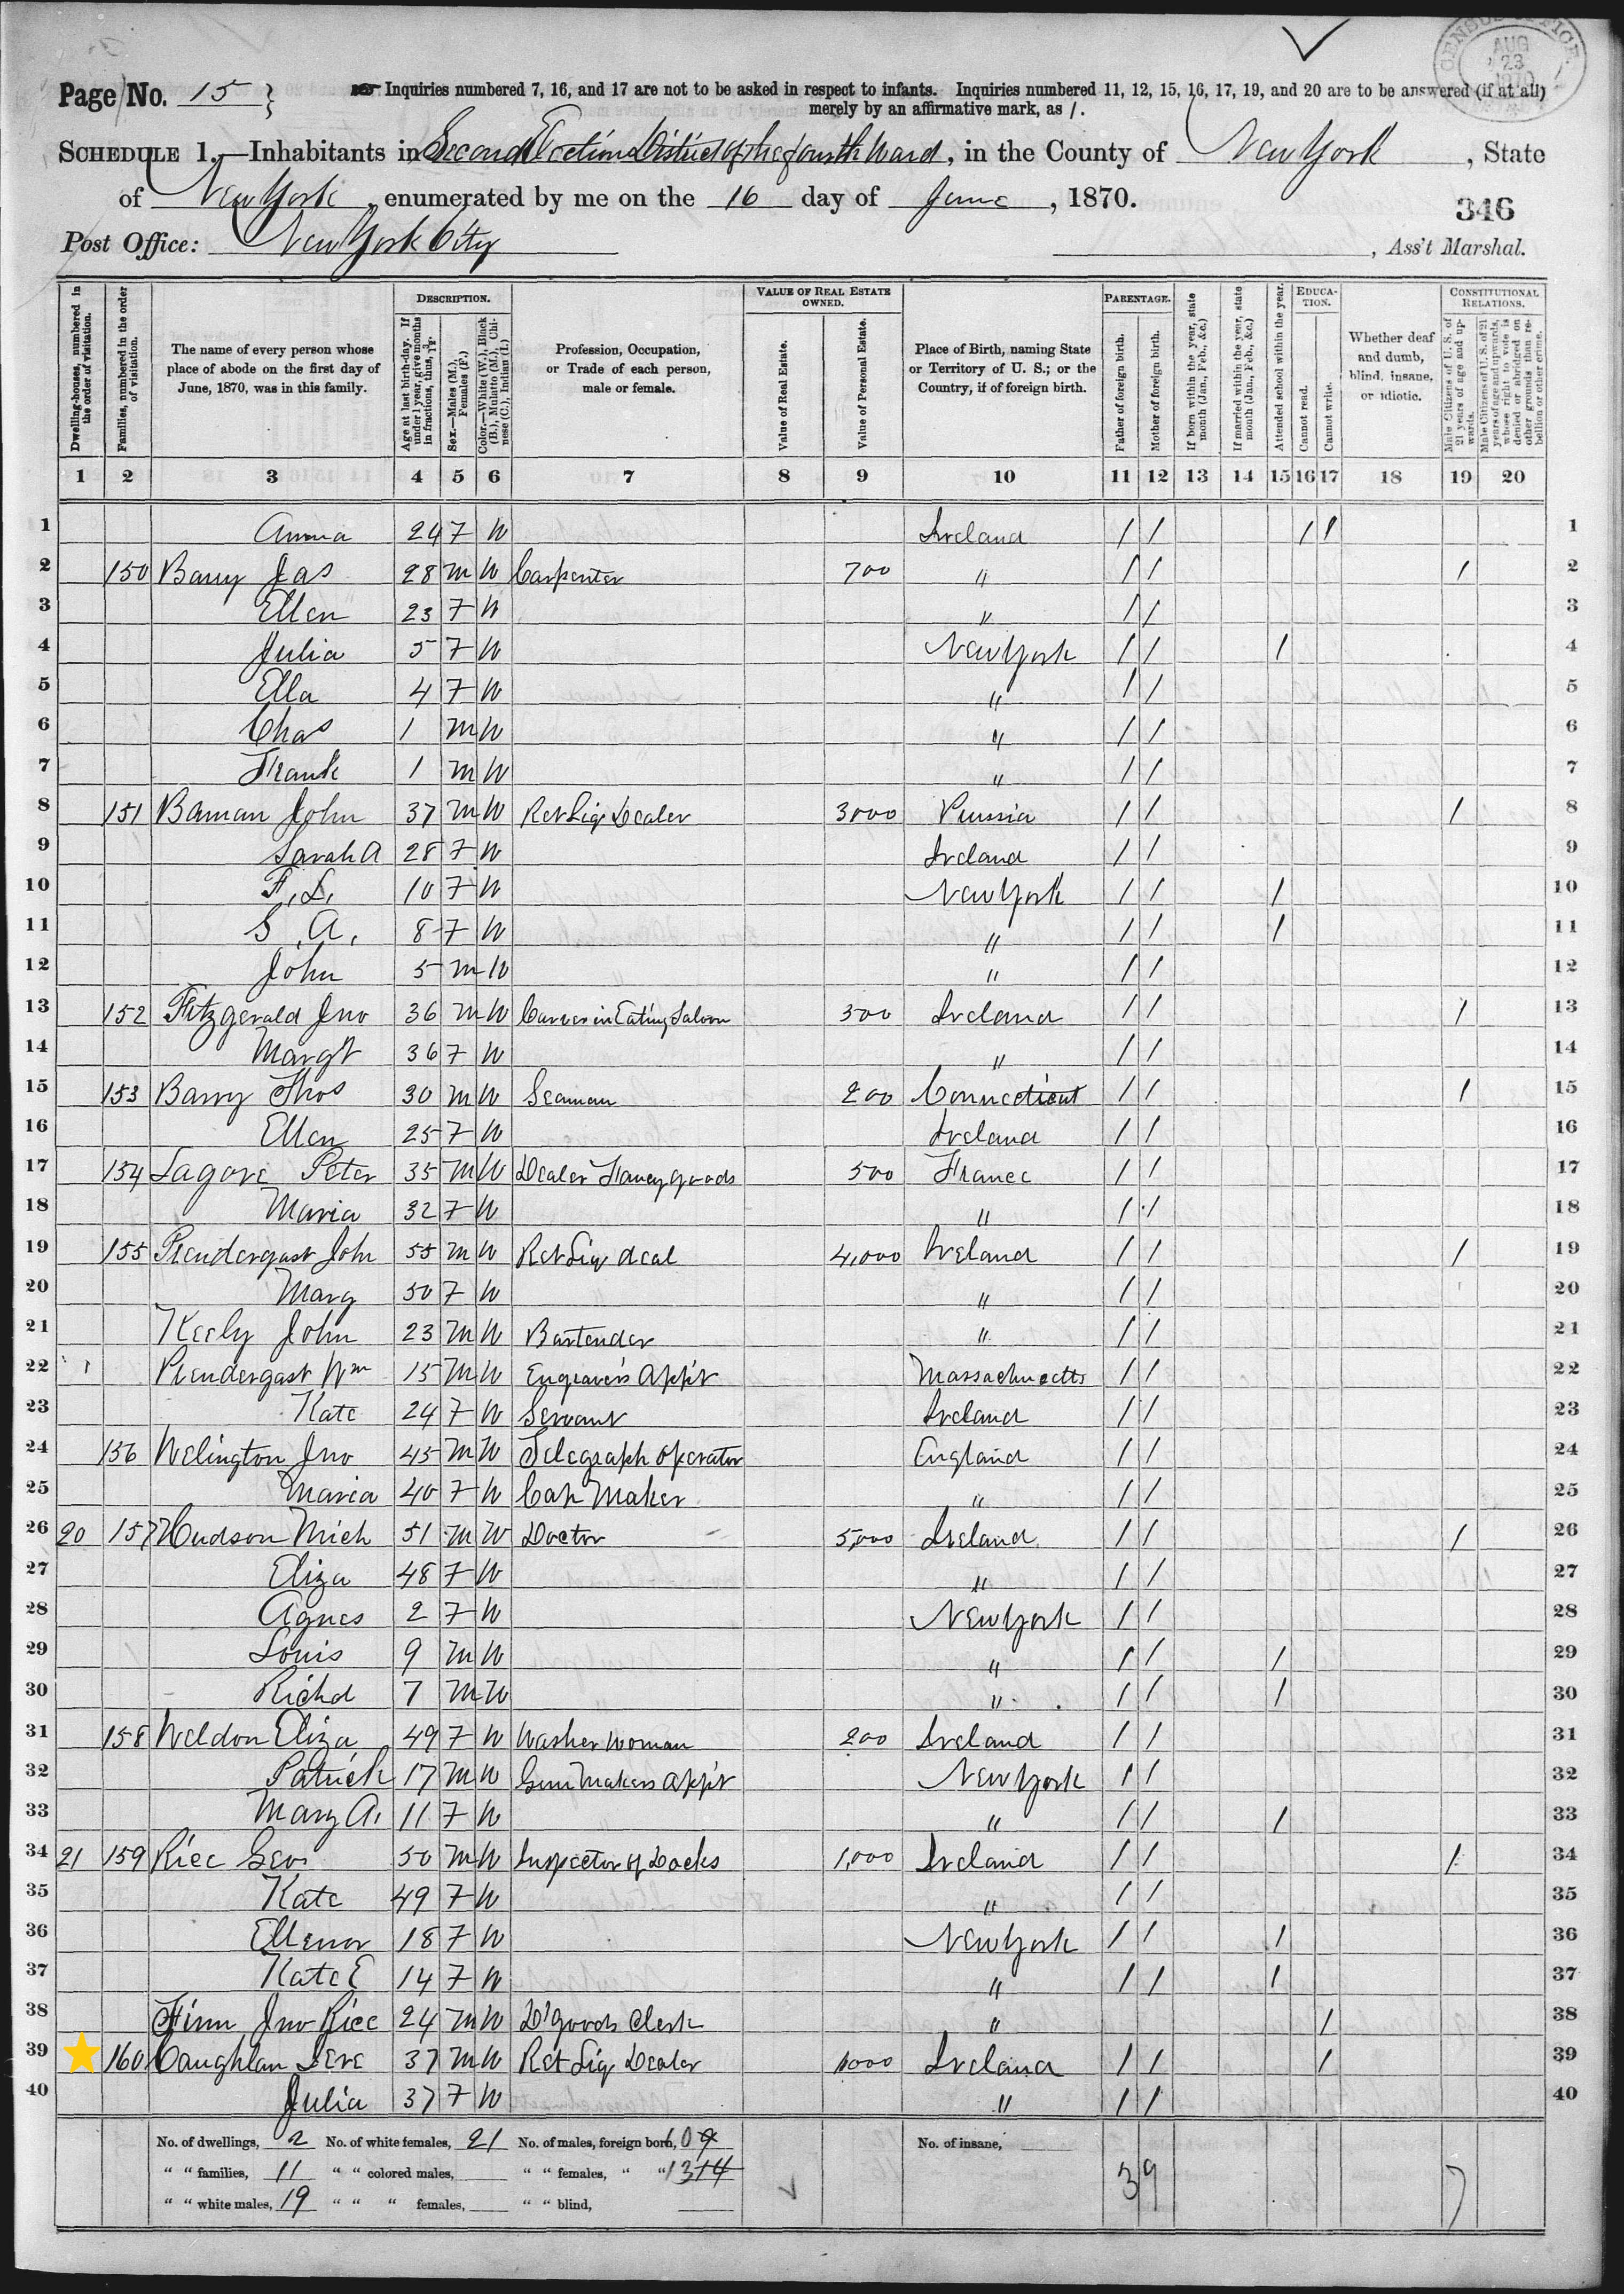 CENSUS OFFICE AUG 23 1870
Page No. 15
Inquiries numbered 7, 16, and 17 are not to be asked in respect to infants. Inquiries numbered 11, 12, 15, 16, 17, 19, and 20 are to be answered (if at all)
merely by an affirmative mark, as /.
SCHEDULE 1.—Inhabitants in Second Election District of the fourth Ward, in the County of New York, State
of New York, enumerated by me on the 16 day of June, 1870.
346
Post Office: New York City , Ass't Marshal.
Dwelling-houses, numbered in the order of visitation.
Families, numbered in the order of visitation.
The name of every person whose place of abode on the first day of June, 1870, was in this family.
DESCRIPTION.
Age at last birth-day. If under 1 year, give months in fractions, thus, 3/12.
Sex.—Males (M.), Females (F.)
Color.—White (W.), Black (B.), Mulatto (M.), Chinese (C.), Indian (I.)
Profession, Occupation, or Trade of each person, male or female.
VALUE OF REAL ESTATE OWNED.
Value of Real Estate.
Value of Personal Estate.
Place of Birth, naming State or Territory of U. S.; or the Country, if of foreign birth.
PARENTAGE.
Father of foreign birth.
Mother of foreign birth.
If born within the year, state month (Jan., Feb., &c.)
If married within the year, state month (Jan., Feb., &c.)
Attended school within the year.
EDUCATION.
Cannot read.
Cannot write.
Whether deaf and dumb, blind, insane, or idiotic.
CONSTITUTIONAL RELATIONS.
Male Citizens of U. S. of 21 years of age and upwards.
Male Citizens of U. S. of 21 years of age and upwards, whose right to vote is denied or abridged on other grounds than rebellion or other crime.
1 2 3 4 5 6 7 8 9 10 11 12 13 14 15 16 17 18 19 20
1 Anna 24 F W Ireland / / / / 1
2 150 Barry Jas 28 M W Carpenter 700 " / / / 2
3 Ellen 23 F W " / / 3
4 Julia 5 F W New York / / / 4
5 Ella 4 F W " / / 5
6 Chas 1 M W " / / 6
7 Frank 1 M W " / / 7
8 151 Baman John 37 M W Ret Liq Dealer 3000 Prussia / / / 8
9 Sarah A 28 F W Ireland / / 9
10 F. L. 10 F W New York / / / 10
11 S. A. 8 F W " / / / 11
12 John 5 M W " / / 12
13 152 Fitzgerald Jno 36 M W Carver in Eating Saloon 300 Ireland / / / 13
14 Margt 36 F W " / / 14
15 153 Barry Thos 30 M W Seaman 200 Connecticut / / / 15
16 Ellen 25 F W Ireland / / 16
17 154 Lagore Peter 35 M W Dealer Fancy goods 500 France / / 17
18 Maria 32 F W " / / 18
19 155 Prendergast John 55 M W Ret Liq deal 4,000 Ireland / / / 19
20 Mary 50 F W " / / 20
21 Keely John 23 M W Bartender " / / 21
22 Prendergast Wm 15 M W Engraver's App't Massachusetts / / 22
23 Kate 24 F W Servant Ireland / / 23
24 156 Welington Jno 45 M W Telegraph operator England / / 24
25 Maria 40 F W Cap Maker " / / 25
26 20 157 Hudson Mich 51 M W Doctor 5,000 Ireland / / / 26
27 Eliza 48 F W " / / 27
28 Agnes 2 F W New York / / 28
29 Louis 9 M W " / / / 29
30 Richd 7 M W " / / / 30
31 158 Weldon Eliza 49 F W Washer Woman 200 Ireland / / 31
32 Patrick 17 M W Gun Makers App't New York / / 32
33 Mary A. 11 F W " / / / 33
34 21 159 Rice Geo. 50 M W Inspector of Docks 1,000 Ireland / / / 34
35 Kate 49 F W " / / 35
36 Ellenor 18 F W New York / / / 36
37 Kate E 14 F W " / / / 37
38 Finn Jno Rice 24 M W D'goods Clerk " / 38
39 160 Caughlan Jere 37 M W Ret Liq Dealer 1000 Ireland / / / 39
40 Julia 37 F W " / / 40
No. of dwellings, 2 No. of white females, 21 No. of males, foreign born, 10 9 No. of insane,
" " families, 11 " " colored males, " " females, " " 13 14 39 7
" " white males, 19 " " " females, " " blind,